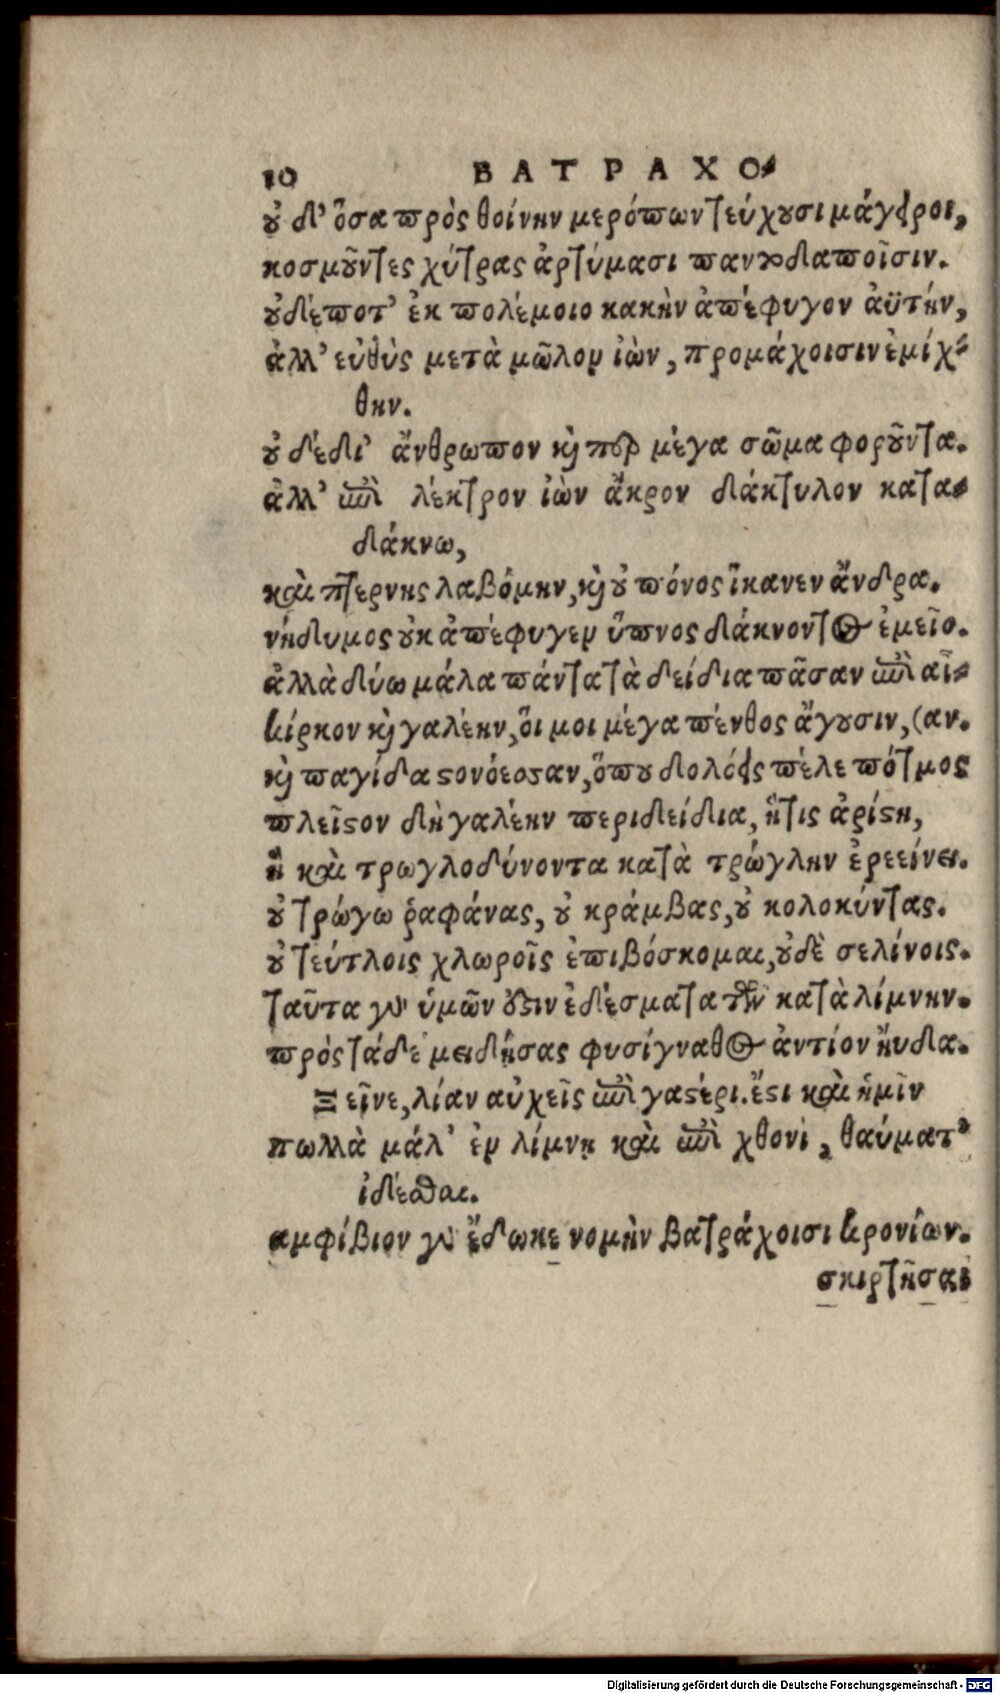 10 ΒΑΤΡΑΧΟ-
οὐδ' ὅσα πρὸς θοίνην μερόπων τεύχουσι μάγειροι,
κοσμοῦντες χύτρας ἀρτύμασι παντοδαποῖσιν.
οὐδέποτ' ἐκ πολέμοιο κακὴν ἀπέφυγον ἀϋτήν,
ἀλλ' εὐθὺς μετὰ μῶλον ἰὼν, προμάχοισιν ἐμίχ-
θην.
οὐ δέδι' ἄνθρωπον καὶ περ μέγα σῶμα φοροῦντα.
ἀλλ' ἐπὶ λέκτρον ἰὼν ἄκρον δάκτυλον κατα-
δάκνω,
καὶ πτερνης λαβόμην, καὶ οὐ πόνος ἵκανεν ἄνδρα.
νήδυμος οὐκ ἀπέφυγεν ὕπνος δάκνοντος ἐμεῖο.
ἀλλὰ δύω μάλα πάντα τὰ δείδια πᾶσαν ἐπὶ αἶ-
κίρκον καὶ γαλέην, οἵ μοι μέγα πένθος ἄγουσιν, (αν.
καὶ παγίδα στονόεσσαν, ὅπου δολόεις πέλε πότμος
πλεῖστον δὴ γαλέην περιδείδια, ἥτις ἀρίστη,
ἣ καὶ τρωγλοδύνοντα κατὰ τρώγλην ἐρεείνει.
οὐ τρώγω ῥαφάνας, οὐ κράμβας, οὐ κολοκύντας.
οὐ τεύτλοις χλωροῖς ἐπιβόσκομαι, οὐδὲ σελίνοις.
ταῦτα γὰρ ὑμῶν ἐστιν ἐδέσματα τῶν κατὰ λίμνην.
πρὸς τάδε μειδήσας φυσίγναθος ἀντίον ηὔδα.
Ξεῖνε, λίαν αὐχεῖς ἐπὶ γαστέρι. ἔστι καὶ ἡμῖν
πολλὰ μάλ' ἐν λίμνῃ καὶ ἐπὶ χθονὶ, θαύματ'
ἰδέσθαι.
αμφίβιον γὰρ ἔδωκε νομὴν βατράχοισι κρονίων.
σκιρτῆσαι
Digitalisierung gefördert durch die Deutsche Forschungsgemeinschaft - DFG